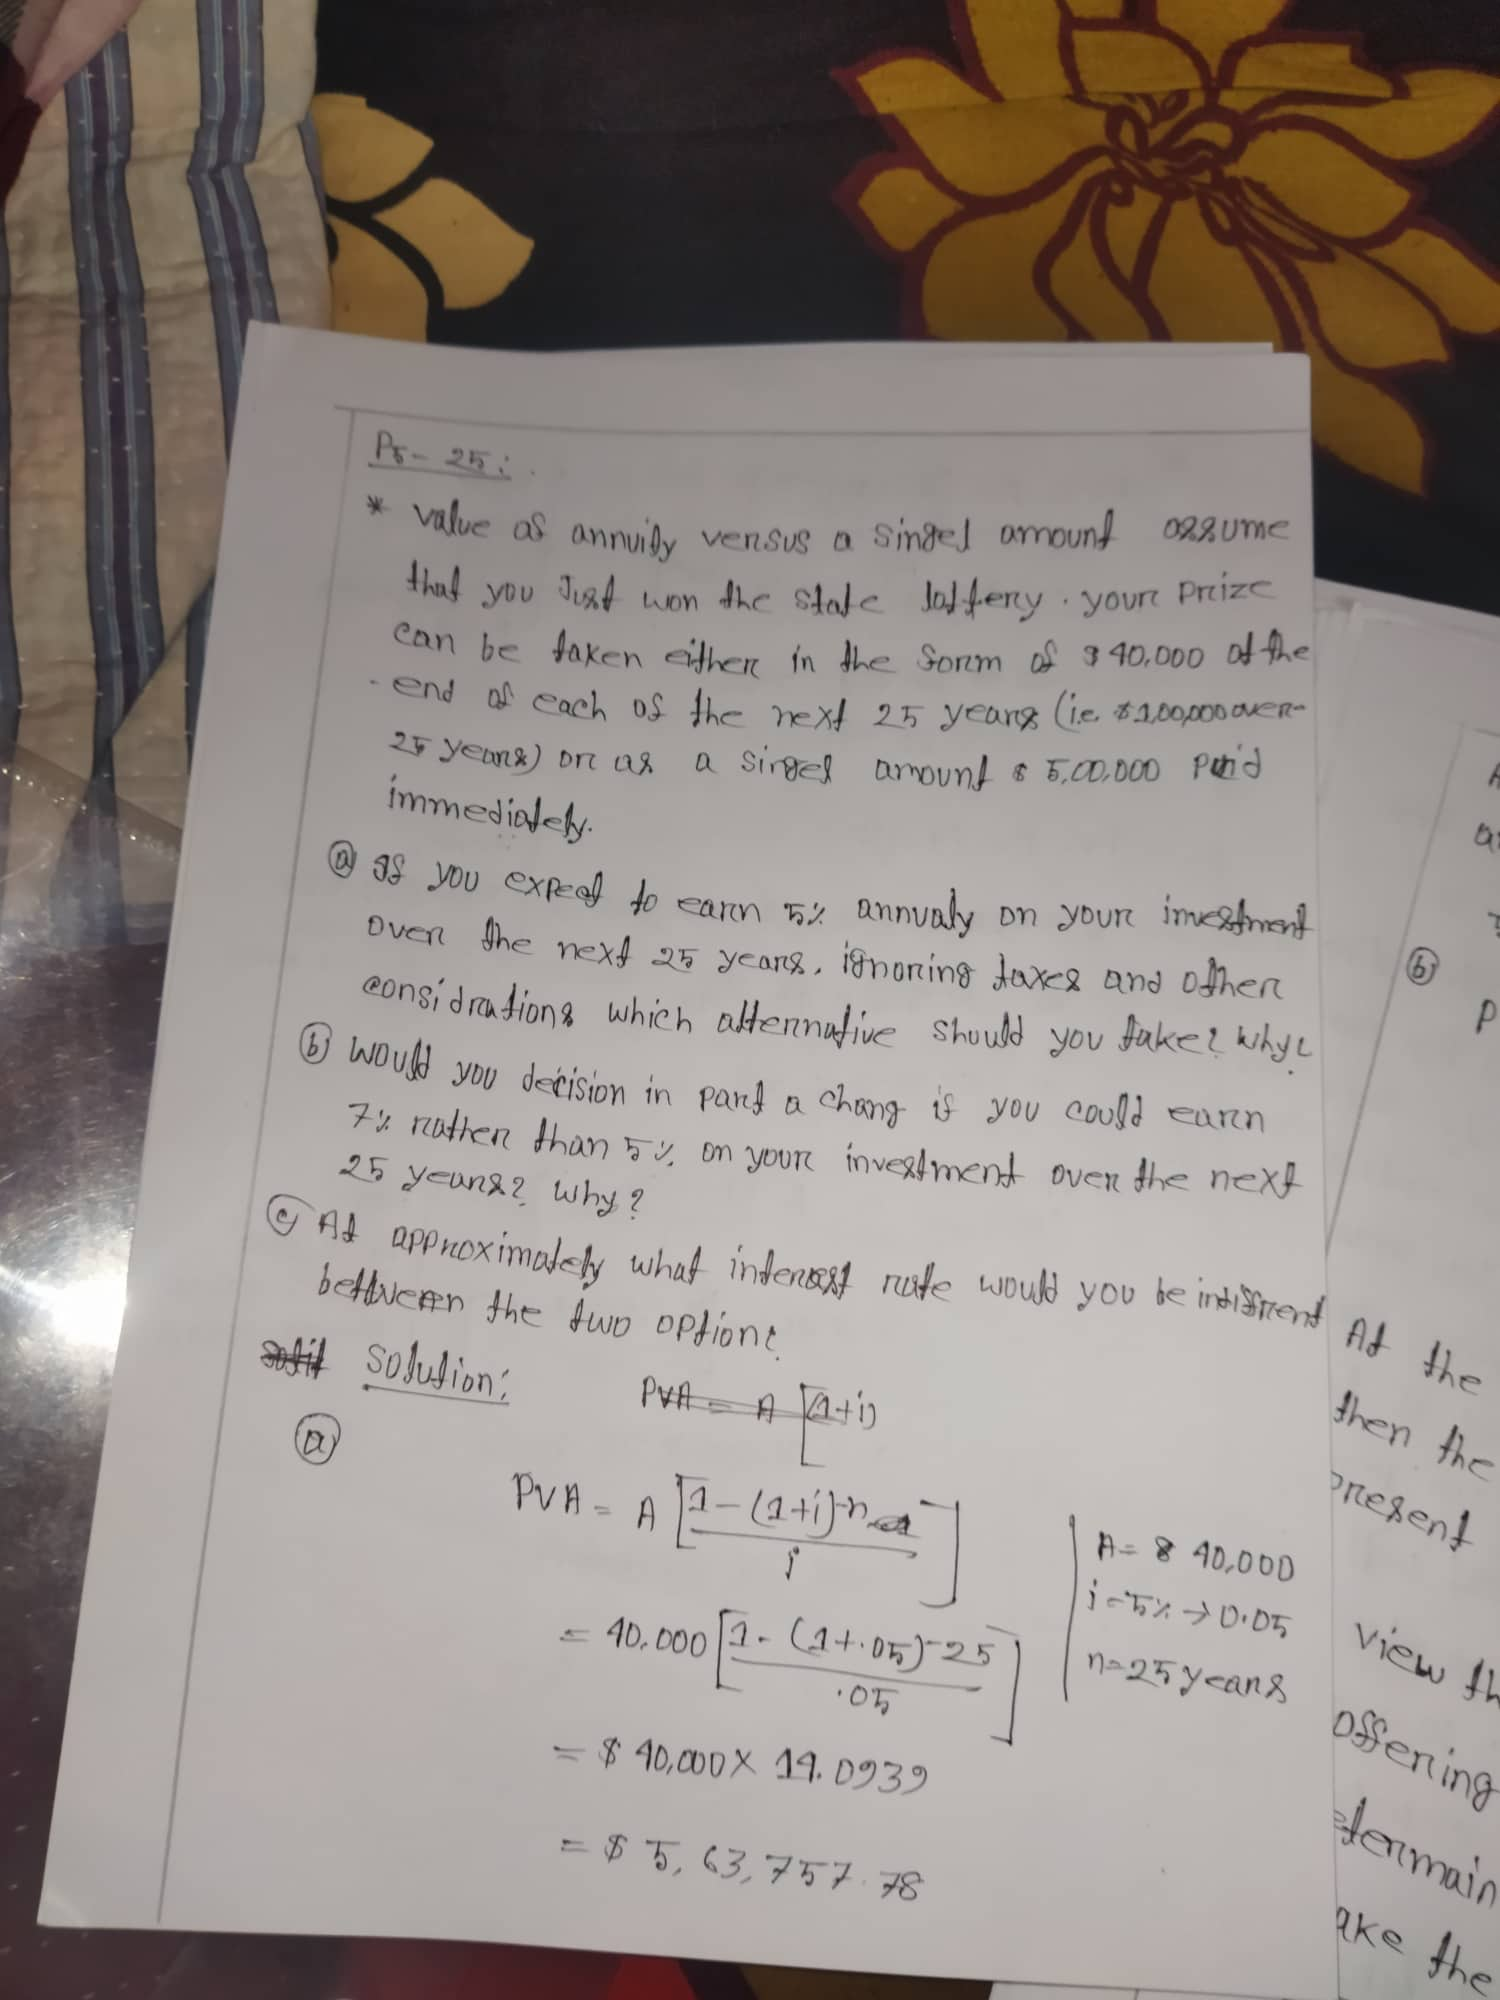 P5-25:
* value of annuity versus a singel amount assume
that you Just won the state lottery. your prize
can be taken either in the form of $40,000 at the
end of each of the next 25 years (i.e. $1,00,000 over
25 years) or as a singel amount $5,00,000 paid
immediately.
ⓐ If you expect to earn 5% annualy on your investment
over the next 25 years, ignoring taxes and other
considrations which alternative should you take? why?
ⓑ Would you decision in part a chang if you could earn
7% rather than 5% on your investment over the next
25 years? why?
ⓒ At approximately what interest rate would you be indiffrent
between the two option?
Solution:
PVA = A [(1+i)
ⓐ
PVA = A [1-(1+i)-n / i]
A = $ 40,000
i = 5% → 0.05
n = 25 years
= 40,000 [1-(1+.05)-25 / .05]
= $ 40,000 × 14.0939
= $ 5,63,757.78
ⓑ
P
At the
then the
present
view th
offering
etermain
ake the